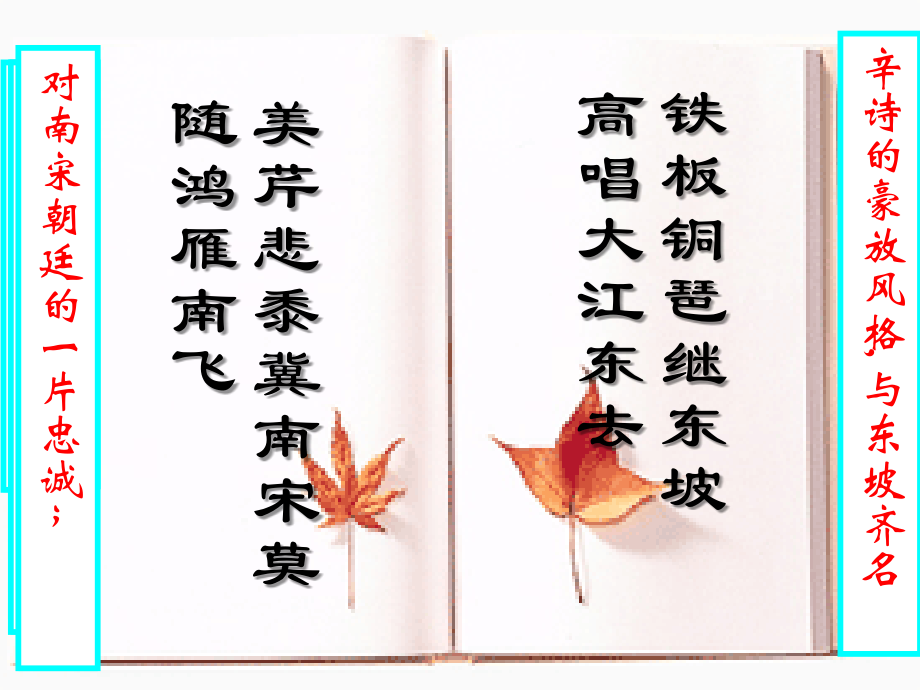 辛诗的豪放风格,与东坡齐名
铁板铜琶继东坡
高唱大江东去
美芹悲黍冀南宋莫
随鸿雁南飞
对南宋朝廷的一片忠诚；